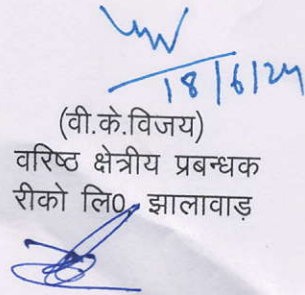 18/6/24
(वी.के.विजय)
वरिष्ठ क्षेत्रीय प्रबन्धक
रीको लि0, झालावाड़